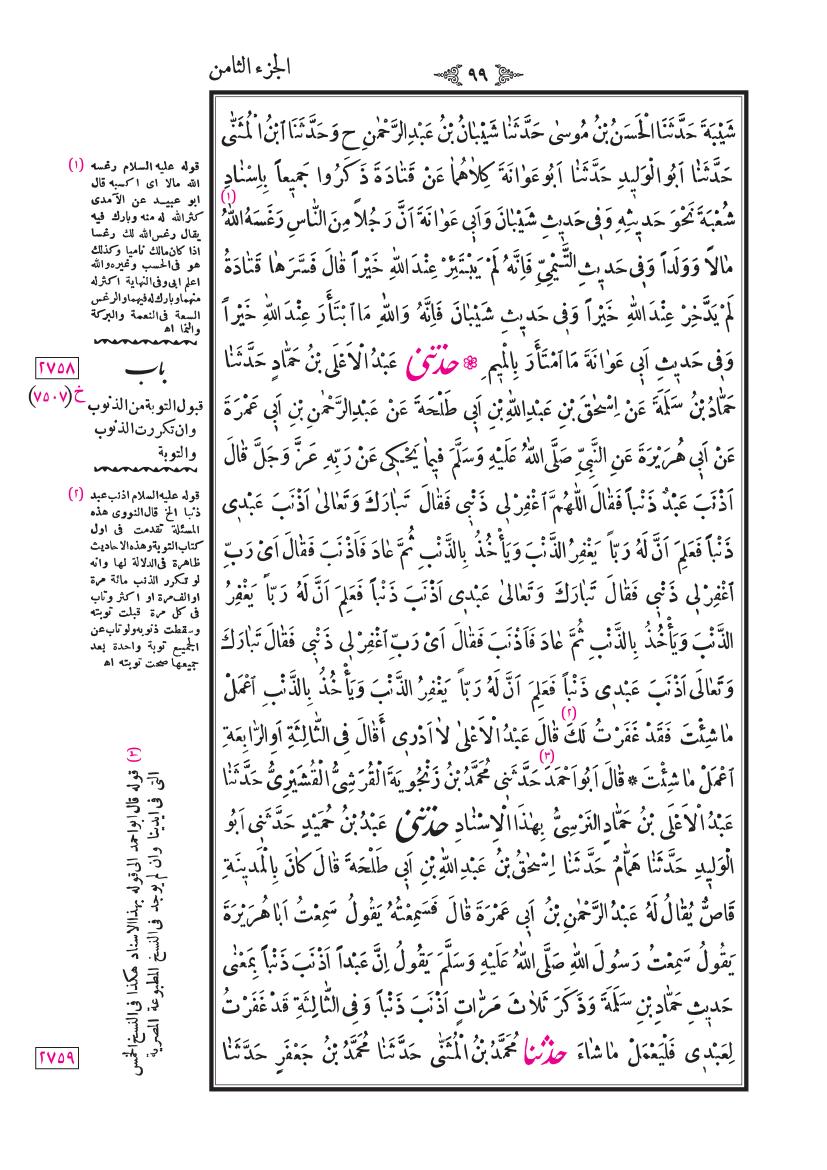 الجزء الثامن
٩٩
شَيْبَةَ حَدَّثَنَا الْحَسَنُ بْنُ مُوسَى حَدَّثَنَا شَيْبَانُ بْنُ عَبْدِ الرَّحْمٰنِ ح وَحَدَّثَنَا ابْنُ الْمُثَنّٰى
حَدَّثَنَا اَبُو الْوَلِيدِ حَدَّثَنَا اَبُو عَوَانَةَ كِلَاهُمَا عَنْ قَتَادَةَ ذَكَرُوا جَمِيعاً بِاِسْنَادِ
شُعْبَةَ نَحْوَ حَدِيثِهِ وَفِى حَدِيثِ شَيْبَانَ وَاَبِى عَوَانَةَ اَنَّ رَجُلاً مِنَ النَّاسِ رَغَسَهُ اللهُ (١)
مَالاً وَوَلَداً وَفِى حَدِيثِ التَّيْمِىِّ فَاِنَّهُ لَمْ يَبْتَئِرْ عِنْدَ اللهِ خَيْراً قَالَ فَسَّرَهَا قَتَادَةُ
لَمْ يَدَّخِرْ عِنْدَ اللهِ خَيْراً وَفِى حَدِيثِ شَيْبَانَ فَاِنَّهُ وَاللهِ مَا ابْتَأَرَ عِنْدَ اللهِ خَيْراً
وَفِى حَدِيثِ اَبِى عَوَانَةَ مَا امْتَأَرَ بِالْمِيمِ ❁ حَدَّثَنِى عَبْدُ الْاَعْلَى بْنُ حَمَّادٍ حَدَّثَنَا
حَمَّادُ بْنُ سَلَمَةَ عَنْ اِسْحٰقَ بْنِ عَبْدِ اللهِ بْنِ اَبِى طَلْحَةَ عَنْ عَبْدِ الرَّحْمٰنِ بْنِ اَبِى عَمْرَةَ
عَنْ اَبِى هُرَيْرَةَ عَنِ النَّبِىِّ صَلَّى اللهُ عَلَيْهِ وَسَلَّمَ فِيمَا يَحْكِى عَنْ رَبِّهِ عَزَّ وَجَلَّ قَالَ
اَذْنَبَ عَبْدٌ ذَنْباً فَقَالَ اللّٰهُمَّ اغْفِرْ لِى ذَنْبِى فَقَالَ تَبَارَكَ وَتَعَالَىٰ اَذْنَبَ عَبْدِى
ذَنْباً فَعَلِمَ اَنَّ لَهُ رَبّاً يَغْفِرُ الذَّنْبَ وَيَأْخُذُ بِالذَّنْبِ ثُمَّ عَادَ فَاَذْنَبَ فَقَالَ اَىْ رَبِّ
اغْفِرْ لِى ذَنْبِى فَقَالَ تَبَارَكَ وَتَعَالَىٰ عَبْدِى اَذْنَبَ ذَنْباً فَعَلِمَ اَنَّ لَهُ رَبّاً يَغْفِرُ
الذَّنْبَ وَيَأْخُذُ بِالذَّنْبِ ثُمَّ عَادَ فَاَذْنَبَ فَقَالَ اَىْ رَبِّ اغْفِرْ لِى ذَنْبِى فَقَالَ تَبَارَكَ
وَتَعَالَى اَذْنَبَ عَبْدِى ذَنْباً فَعَلِمَ اَنَّ لَهُ رَبّاً يَغْفِرُ الذَّنْبَ وَيَأْخُذُ بِالذَّنْبِ اعْمَلْ
مَا شِئْتَ فَقَدْ غَفَرْتُ لَكَ (٢) قَالَ عَبْدُ الْاَعْلَى لَا اَدْرِى أَقَالَ فِى الثَّالِثَةِ اَوِ الرَّابِعَةِ
اعْمَلْ مَا شِئْتَ * قَالَ اَبُو اَحْمَدَ (٣) حَدَّثَنِى مُحَمَّدُ بْنُ زَنْجُويَةَ الْقُرَشِىُّ الْقُشَيْرِىُّ حَدَّثَنَا
عَبْدُ الْاَعْلَى بْنُ حَمَّادٍ النَّرْسِىُّ بِهٰذَا الْاِسْنَادِ حَدَّثَنِى عَبْدُ بْنُ حُمَيْدٍ حَدَّثَنِى اَبُو
الْوَلِيدِ حَدَّثَنَا هَمَّامٌ حَدَّثَنَا اِسْحٰقُ بْنُ عَبْدِ اللهِ بْنِ اَبِى طَلْحَةَ قَالَ كَانَ بِالْمَدِينَةِ
قَاصٌّ يُقَالُ لَهُ عَبْدُ الرَّحْمٰنِ بْنُ اَبِى عَمْرَةَ قَالَ فَسَمِعْتُهُ يَقُولُ سَمِعْتُ اَبَا هُرَيْرَةَ
يَقُولُ سَمِعْتُ رَسُولَ اللهِ صَلَّى اللهُ عَلَيْهِ وَسَلَّمَ يَقُولُ اِنَّ عَبْداً اَذْنَبَ ذَنْباً بِمَعْنٰى
حَدِيثِ حَمَّادِ بْنِ سَلَمَةَ وَذَكَرَ ثَلَاثَ مَرَّاتٍ اَذْنَبَ ذَنْباً وَفِى الثَّالِثَةِ قَدْ غَفَرْتُ
لِعَبْدِى فَلْيَعْمَلْ مَا شَاءَ حَدَّثَنَا مُحَمَّدُ بْنُ الْمُثَنّٰى حَدَّثَنَا مُحَمَّدُ بْنُ جَعْفَرٍ حَدَّثَنَا
(١) قوله عليه السلام رغسه
الله مالا اى اكسبه قال
ابو عبيد عن الآمدى
كثر الله له منه وبارك فيه
يقال رغس الله لك رغسا
اذا كان مالك ناميا وكذلك
هو فى الحسب وغيره والله
اعلم ابى وفى النهاية اكثر له
منهما وبارك له فيهما والرغس
السعة فى النعمة والبركة
والنما اه
٢٧٥٨
باب
خ (٧٥٠٧)
قبول التوبة من الذنوب
وان تكررت الذنوب
والتوبة
(٢) قوله عليه السلام اذنب عبد
ذنبا الخ قال النووى هذه
المسئلة تقدمت فى اول
كتاب التوبة وهذه الاحاديث
ظاهرة فى الدلالة لها وانه
لو تكرر الذنب مائة مرة
او الف مرة او اكثر وتاب
فى كل مرة قبلت توبته
وسقطت ذنوبه ولو تاب عن
الجميع توبة واحدة بعد
جميعها صحت توبته اه
(٣) قوله قال ابو احمد الى قوله بهذا الاسناد هكذا فى النسخ الخمس
التى فى ايدينا وان لم يوجد فى النسخ المطبوعة المصرية
٢٧٥٩